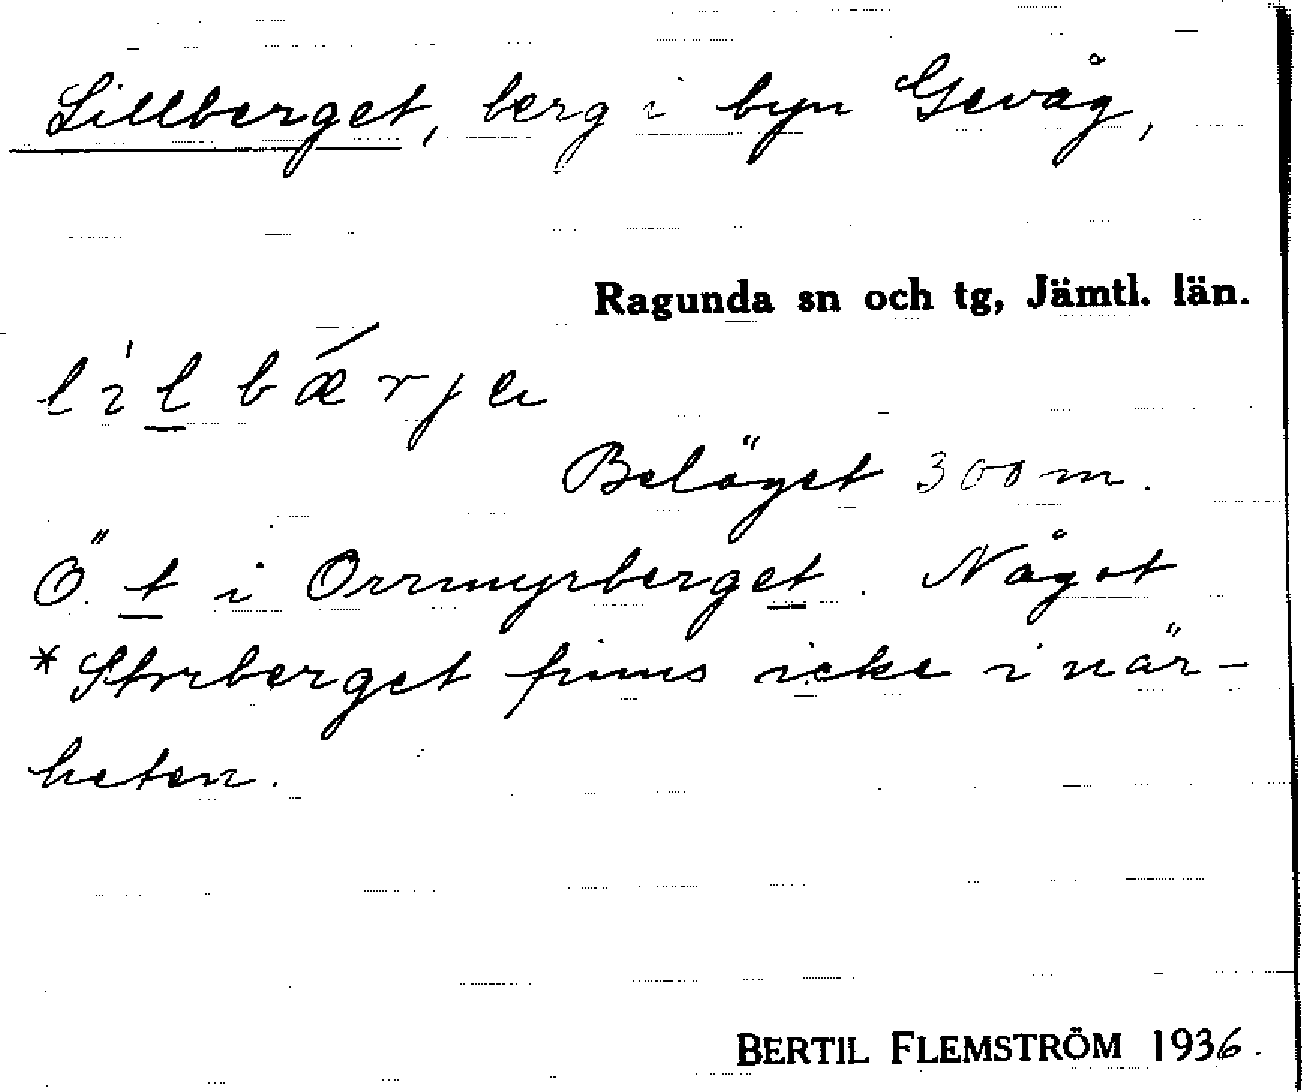 Lillberget, berg i byn Gevåg,
Ragunda sn och tg, Jämtl. län.
lìlbǽrjen
Beläget 300 m.
Ö. t i Orrmyrberget. Något
*Storberget finns icke i när-
heten.
BERTIL FLEMSTRÖM 1936.